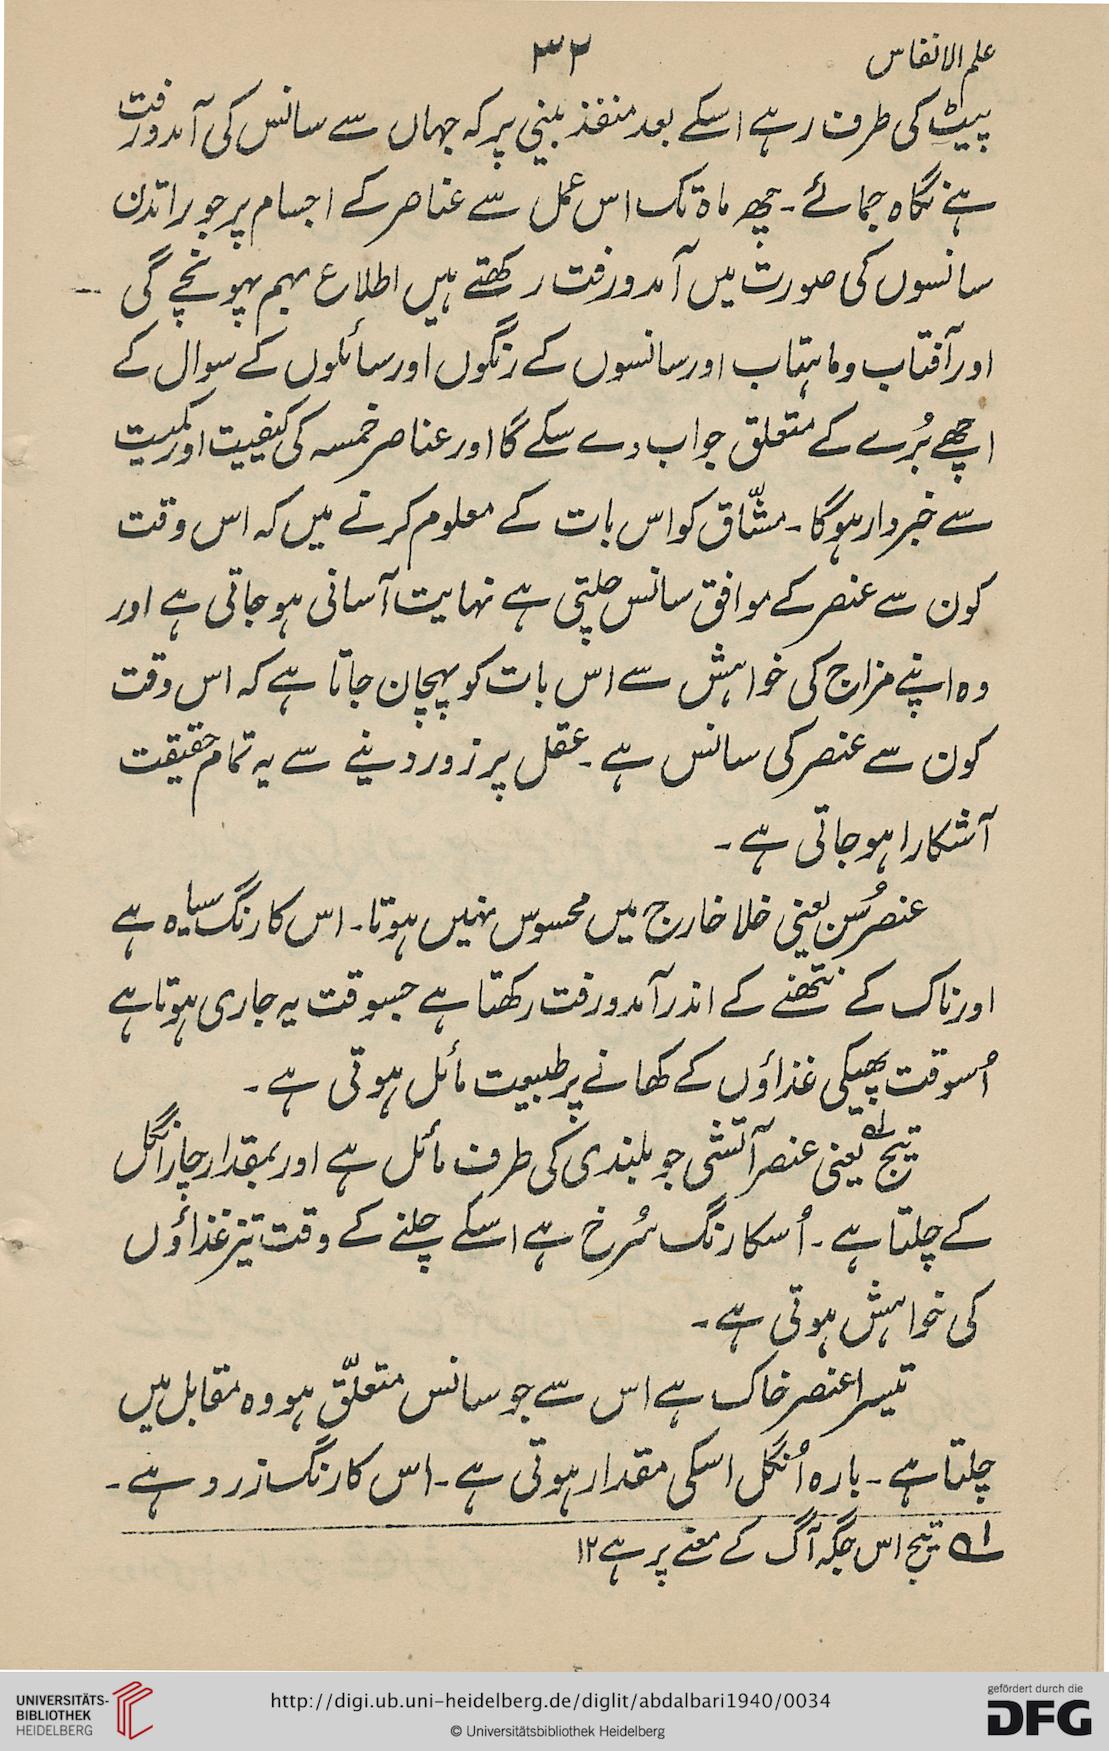 علم الانفاس
۳۲
پیٹ کی طرف رہے اسکے بعد منفذ بینی پر کہ جہاں سے سانس کی آمدورفت
ہے نگاہ جمائے۔ چھ ماہ تک اس عمل سے عناصر کے اجسام پر جو راتدن
سانسوں کی صورت میں آمدورفت رکھتے ہیں اطلاع بہم پہونچے گی
اور آفتاب و ماہتاب اور سانسوں کے رنگوں اور سائلوں کے سوال کے
اچھے بُرے کے متعلق جواب دے سکے گا اور عناصر خمسہ کی کیفیت اور کمیت
سے خبردار ہوگا۔ مشّاق کو اس بات کے معلوم کرنے میں کہ اس وقت
کون سے عنصر کے موافق سانس چلتی ہے نہایت آسانی ہو جاتی ہے اور
وہ اپنے مزاج کی خواہش سے اس بات کو پہچان جاتا ہے کہ اس وقت
کون سے عنصر کی سانس ہے۔ عقل پر زور دینے سے یہ تمام حقیقت
آشکارا ہو جاتی ہے۔
عنصر سُن یعنی خلا خارج میں محسوس نہیں ہوتا۔ اس کا رنگ سیاہ ہے
اور ناک کے نتھنے کے اندر آمدورفت رکھتا ہے جسوقت یہ جاری ہوتا ہے
اُسوقت پھیکی غذاؤں کے کھانے پر طبیعت مائل ہوتی ہے۔
تیج لہ یعنی عنصر آتشی جو بلندی کی طرف مائل ہے اور بمقدار چار انگل
کے چلتا ہے۔ اُسکا رنگ سُرخ ہے اسکے چلنے کے وقت تیز غذاؤں
کی خواہش ہوتی ہے۔
تیسرا عنصر خاک ہے اس سے جو سانس متعلّق ہو وہ مقابل میں
چلتا ہے۔ بارہ اُنگل اسکی مقدار ہوتی ہے۔ اس کا رنگ زرد ہے۔
لہ تیج اس جگہ آگ کے معنے پر ہے ۱۲
UNIVERSITÄTS-
BIBLIOTHEK
HEIDELBERG
http://digi.ub.uni-heidelberg.de/diglit/abdalbari1940/0034
© Universitätsbibliothek Heidelberg
gefördert durch die
DFG